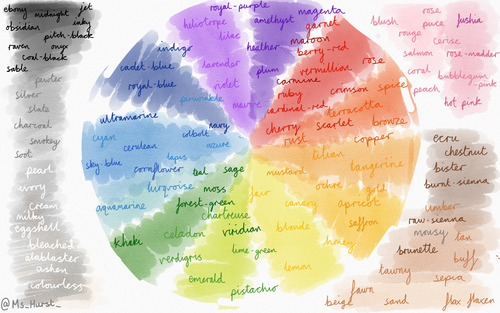 ebony midnight jet
obsidian inky
pitch-black
raven onyx
coal-black
sable
pewter
silver
slate
charcoal
smokey
soot
pearl
ivory
cream
milky
eggshell
bleached
alabaster
ashen
colourless
@Ms_Hurst_
royal-purple
heliotrope
amethyst
lilac
heather
lavender
plum
violet
mauve
magenta
garnet
maroon
berry-red
vermillion
rose
carmine
ruby
crimson
spice
cardinal-red
terracotta
cherry
scarlet
bronze
rust
copper
indigo
cadet-blue
royal-blue
periwinkle
ultramarine
navy
cyan
cobolt
cerulean
azure
lapis
sky-blue
cornflower
turquoise
aquamarine
teal sage
moss
forest-green
chartreuse
khaki
celadon
viridian
verdigris
lime-green
emerald
pistachio
tangerine
mustard
ochre
gold
canary
apricot
blonde
saffron
honey
lemon
rose
blush
puce
fushia
rouge
cerise
salmon
rose-madder
coral
bubblegum-pink
peach
hot pink
ecru
chestnut
bister
burnt-sienna
umber
raw-sienna
mousy
tan
brunette
buff
tawny
sepia
fawn
beige
sand
flax flaxen